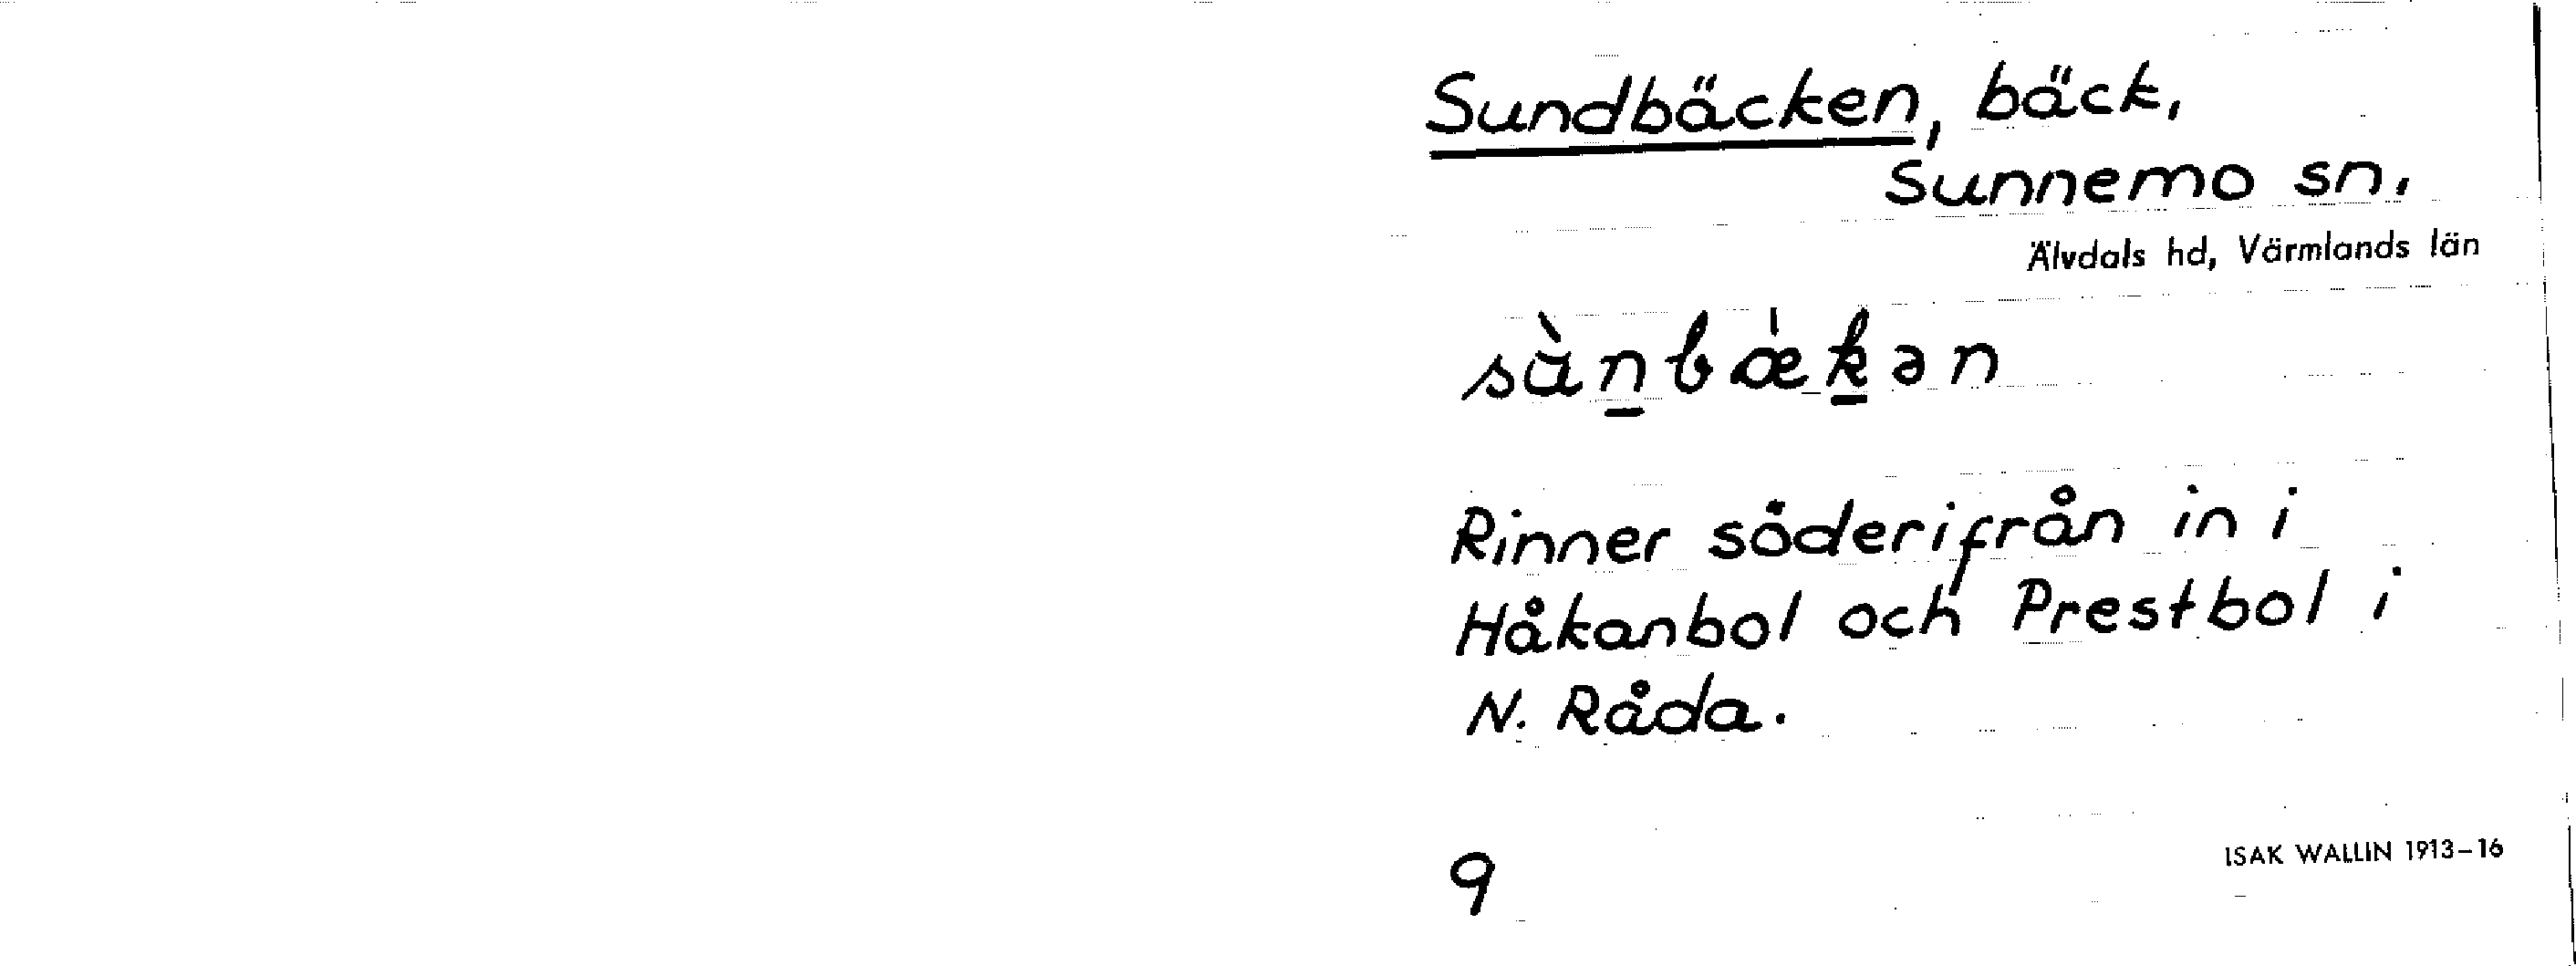 Sundbäcken, bäck,
Sunnemo sn.
Älvdals hd, Värmlands län
sùn̲bæ̍k̲ən
Rinner söderifrån in i
Håkanbol och Prestbol i
N. Råda.
9
ISAK WALLIN 1913–16